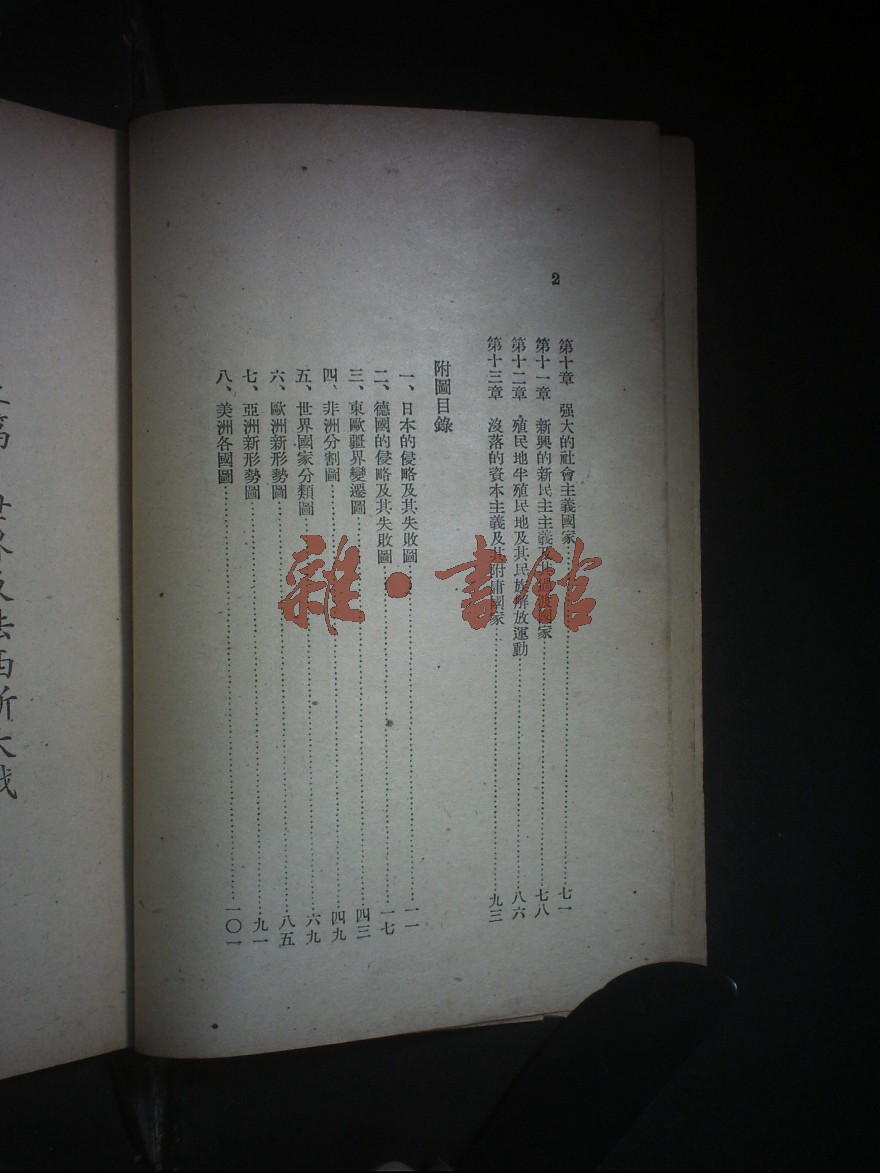 2
第十章 强大的社會主義國家⋯⋯七一
第十一章 新興的新民主主義及其⋯⋯國家⋯⋯七八
第十二章 殖民地半殖民地及其民族解放運動⋯⋯八六
第十三章 沒落的資本主義及其附庸國家⋯⋯九三
附圖目錄
一、日本的侵略及其失敗圖⋯⋯一一
二、德國的侵略及其失敗圖⋯⋯一七
三、東歐疆界變遷圖⋯⋯四三
四、非洲分割圖⋯⋯四九
五、世界國家分類圖⋯⋯六九
六、歐洲新形勢圖⋯⋯八五
七、亞洲新形勢圖⋯⋯九一
八、美洲各國圖⋯⋯一〇一
世界反法西斯大戰
雜·書館